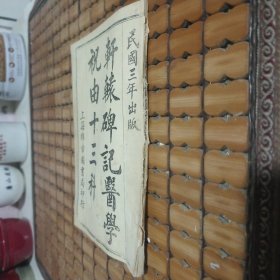 民國三年出版
軒轅碑記醫學
祝由十三科